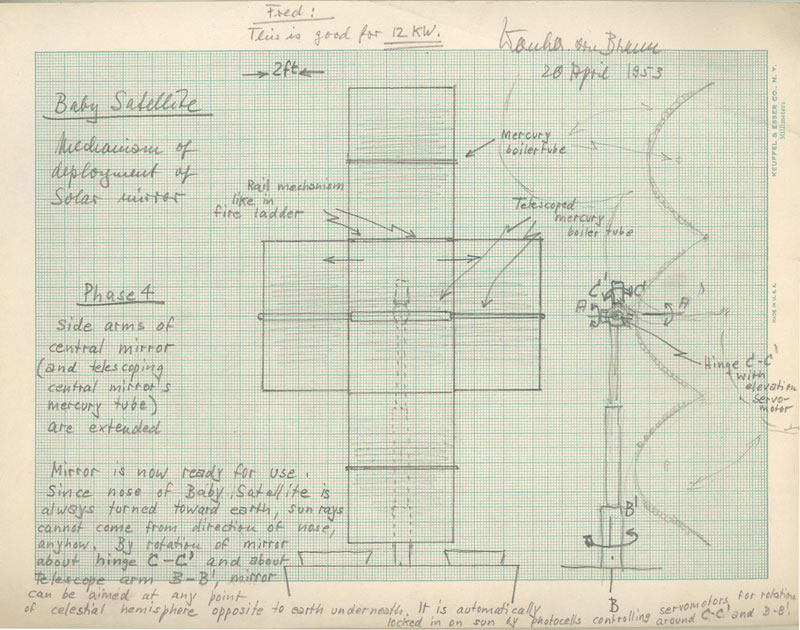 Fred:
This is good for 12 KW.
Wernher von Braun
20 April 1953
2ft
Baby Satellite
Mechanism of
deployment of
Solar mirror
Rail mechanism
like in
fire ladder
Mercury
boiler tube
Telescoped
mercury
boiler tube
Phase 4
Side arms of
central mirror
(and telescoping
central mirror's
mercury tube)
are extended
C'
C
A
A
Hinge C-C'
with
elevation
servo-
motor
B'
B
Mirror is now ready for use.
Since nose of Baby Satellite is
always turned toward earth, sun rays
cannot come from direction of nose,
anyhow. By rotation of mirror
about hinge C-C' and about
telescope arm B-B', mirror
can be aimed at any point
of celestial hemisphere opposite to earth underneath. It is automatically
locked in on sun by photocells controlling servomotors for rotation
around C-C' and B-B'.
KEUFFEL & ESSER CO., N. Y.
Millimeters
MADE IN U.S.A.